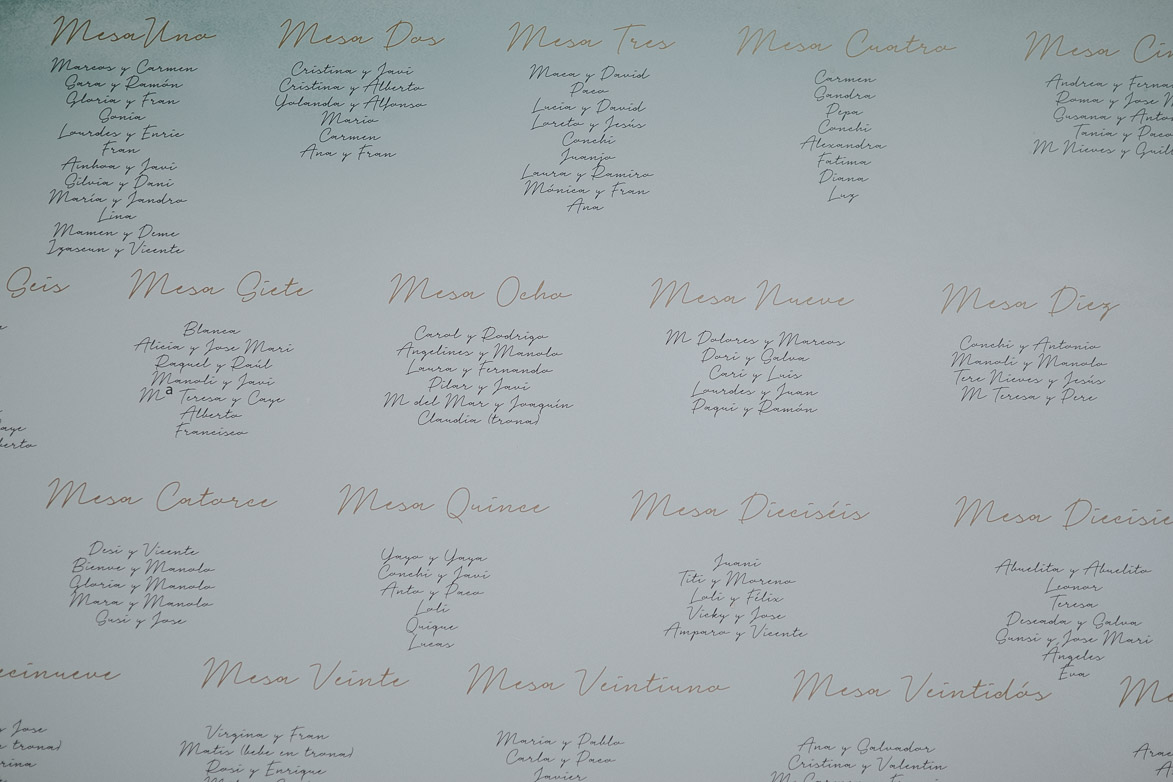 Mesa Uno
Marcos y Carmen
Sara y Ramón
Gloria y Fran
Sonia
Lourdes y Enric
Fran
Ainhoa y Javi
Silvia y Dani
María y Jandro
Lina
Mamen y Deme
Izaskun y Vicente
Mesa Dos
Cristina y Javi
Cristina y Alberto
Yolanda y Alfonso
Mario
Carmen
Ana y Fran
Mesa Tres
Maca y David
Paco
Lucía y David
Loreto y Jesús
Conchi
Juanjo
Laura y Ramiro
Mónica y Fran
Ana
Mesa Cuatro
Carmen
Sandra
Pepa
Conchi
Alexandra
Fatima
Diana
Luz
Mesa Cin
Andrea y Ferna
Roma y Jose
Susana y Anto
Tania y Paco
M Nieves y Guil
Seis
Mesa Siete
Blanca
Alicia y Jose Mari
Raquel y Raúl
Manoli y Javi
Mª Teresa y Caye
Alberto
Francisco
Mesa Ocho
Carol y Rodrigo
Angelines y Manolo
Laura y Fernando
Pilar y Javi
M del Mar y Joaquín
Claudia (trona)
Mesa Nueve
M Dolores y Marcos
Dori y Salva
Cari y Luis
Lourdes y Juan
Paqui y Ramón
Mesa Diez
Conchi y Antonio
Manoli y Manolo
Tere Nieves y Jesús
M Teresa y Pere
aye
berto
Mesa Catorce
Desi y Vicente
Bienve y Manolo
Gloria y Manolo
Mara y Manolo
Susi y Jose
Mesa Quince
Yayo y Yaya
Conchi y Javi
Anto y Paco
Loli
Quique
Lucas
Mesa Dieciséis
Juani
Titi y Moreno
Loli y Félix
Vicky y Jose
Amparo y Vicente
Mesa Diecisie
Abuelita y Abuelito
Leonor
Teresa
Deseada y Salva
Sunsi y Jose Mari
Ángeles
Eva
ecinueve
y Jose
trona)
rina
Mesa Veinte
Virgina y Fran
Matis (bebe en trona)
Rosi y Enrique
Mesa Veintiuno
María y Pablo
Carla y Paco
Javier
Mesa Veintidós
Ana y Salvador
Cristina y Valentin
Me
Arac